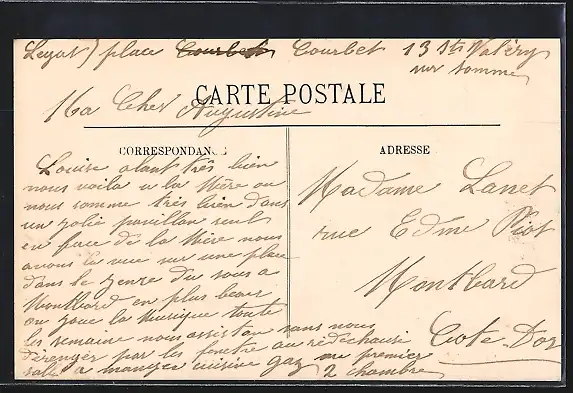 Legat) place Courbet Courbet 13 St Valéry
sur somme
Ma Cher Augustine
CARTE POSTALE
CORRESPONDANCE
Louise alant très bien
nous voila a la Mère ou
nous somme très bien dans
un jolie pavillon seul
en face de la Mère nous
avons la vue sur une place
dans le genre du sous a
Montbard en plus beau
ou joue la Musique toute
les semaine nous assiston sans nous
déranger par les fenêtre au redéchausé
sale a manger cuisine gaz au premier
2 chambre
ADRESSE
Madame Lanet
rue Edme Piot
Montbard
Cote-Dor